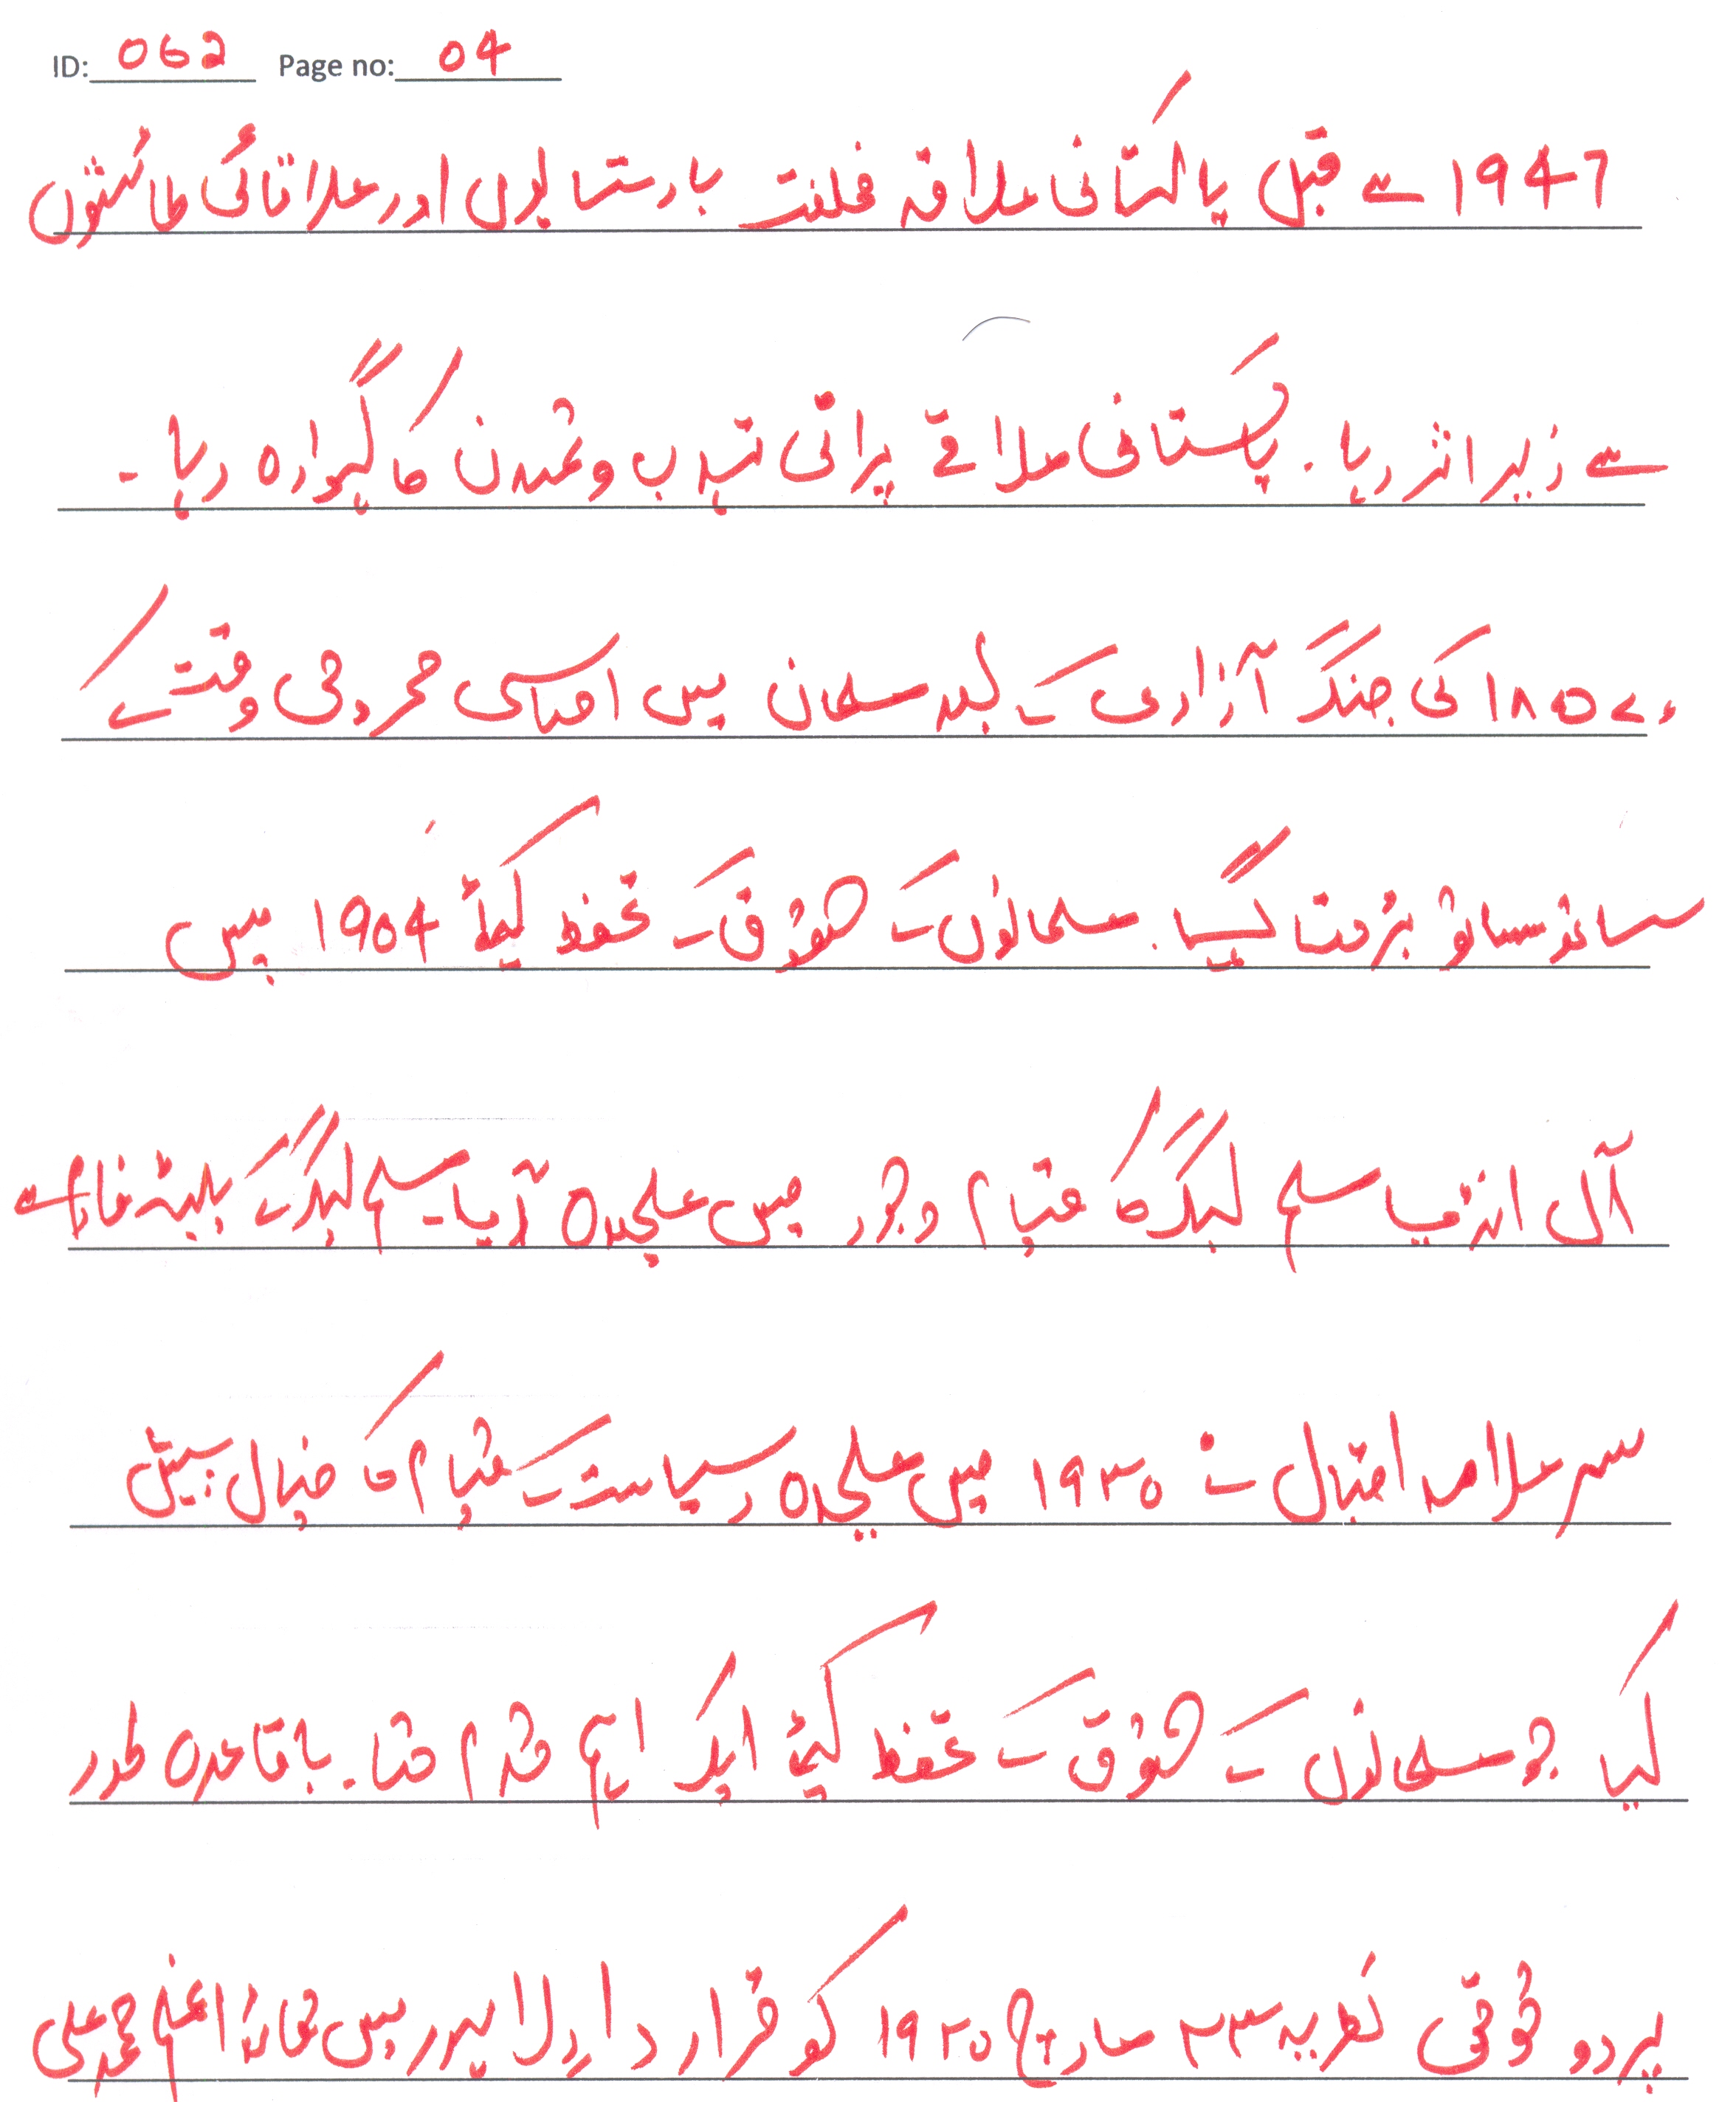 ID: 062 Page no: 04
1947 سے قبل پاکستانی علاقہ مختلف بادشاہوں اور علاقائی طاقتوں
سے زیر اثر رہا۔ پاکستانی علاقے پرانی تہذیب و تمدن کا گہوارہ رہا۔
۱۸۵۷ء کی جنگ آزادی کے بعد مسلمان میں احساس محرومی وقت کے
ساتھ ساتھ بڑھتا گیا۔ مسلمانوں کے حقوق کے تحفظ کیلئے 1904 میں
آل انڈیا مسلم لیگ کا قیام وجود میں علیحدہ آیا۔ مسلم لیگ کے پلیٹ فارم سے
سر علامہ اقبال نے ۱۹۳۰ میں علیحدہ ریاست کے قیام کا خیال پیش
کیا جو مسلمانوں کے حقوق کے تحفظ کیلئے ایک اہم قدم تھا۔ باقاعدہ طور
پر دو قومی نظریہ ۲۳ مارچ ۱۹۴۰ کو قرارداد لاہور میں قائد اعظم محمد علی